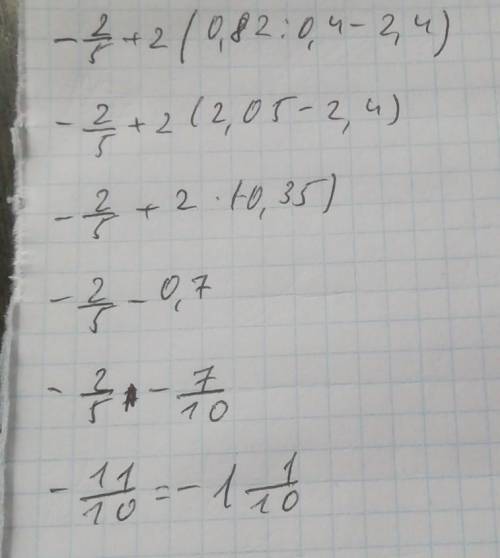 - 2/5 + 2 (0,82 : 0,4 - 2,4)
- 2/5 + 2 (2,05 - 2,4)
- 2/5 + 2 · (-0,35)
- 2/5 - 0,7
- 2/5 - 7/10
- 11/10 = - 1 1/10